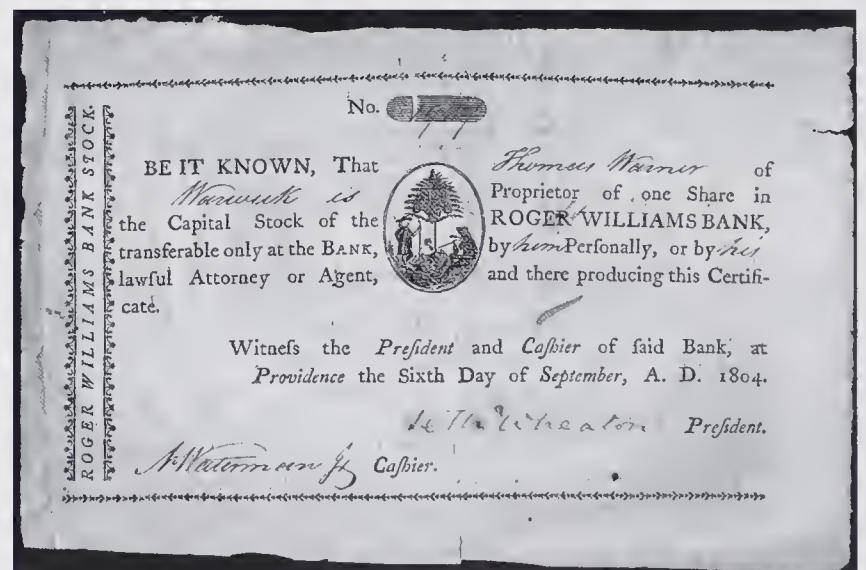 ROGER WILLIAMS BANK STOCK.
No.
BE IT KNOWN, That Thomas Warner of
Warwick is Proprietor of one Share in
the Capital Stock of the ROGER WILLIAMS BANK,
transferable only at the BANK, by him Perſonally, or by his
lawful Attorney or Agent, and there producing this Certifi-
cate.
Witneſs the Preſident and Caſhier of ſaid Bank, at
Providence the Sixth Day of September, A. D. 1804.
Seth Wheaton Preſident.
N. Waterman Jr Caſhier.